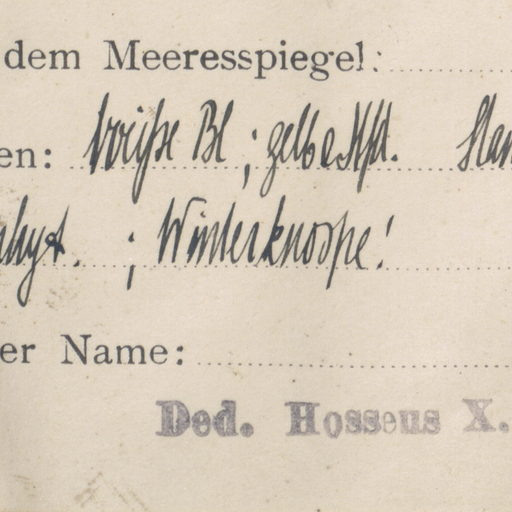 dem Meeresspiegel:
en: weiße Bl; gelbe
; Winterknospe!
er Name:
Ded. Hosseus X.